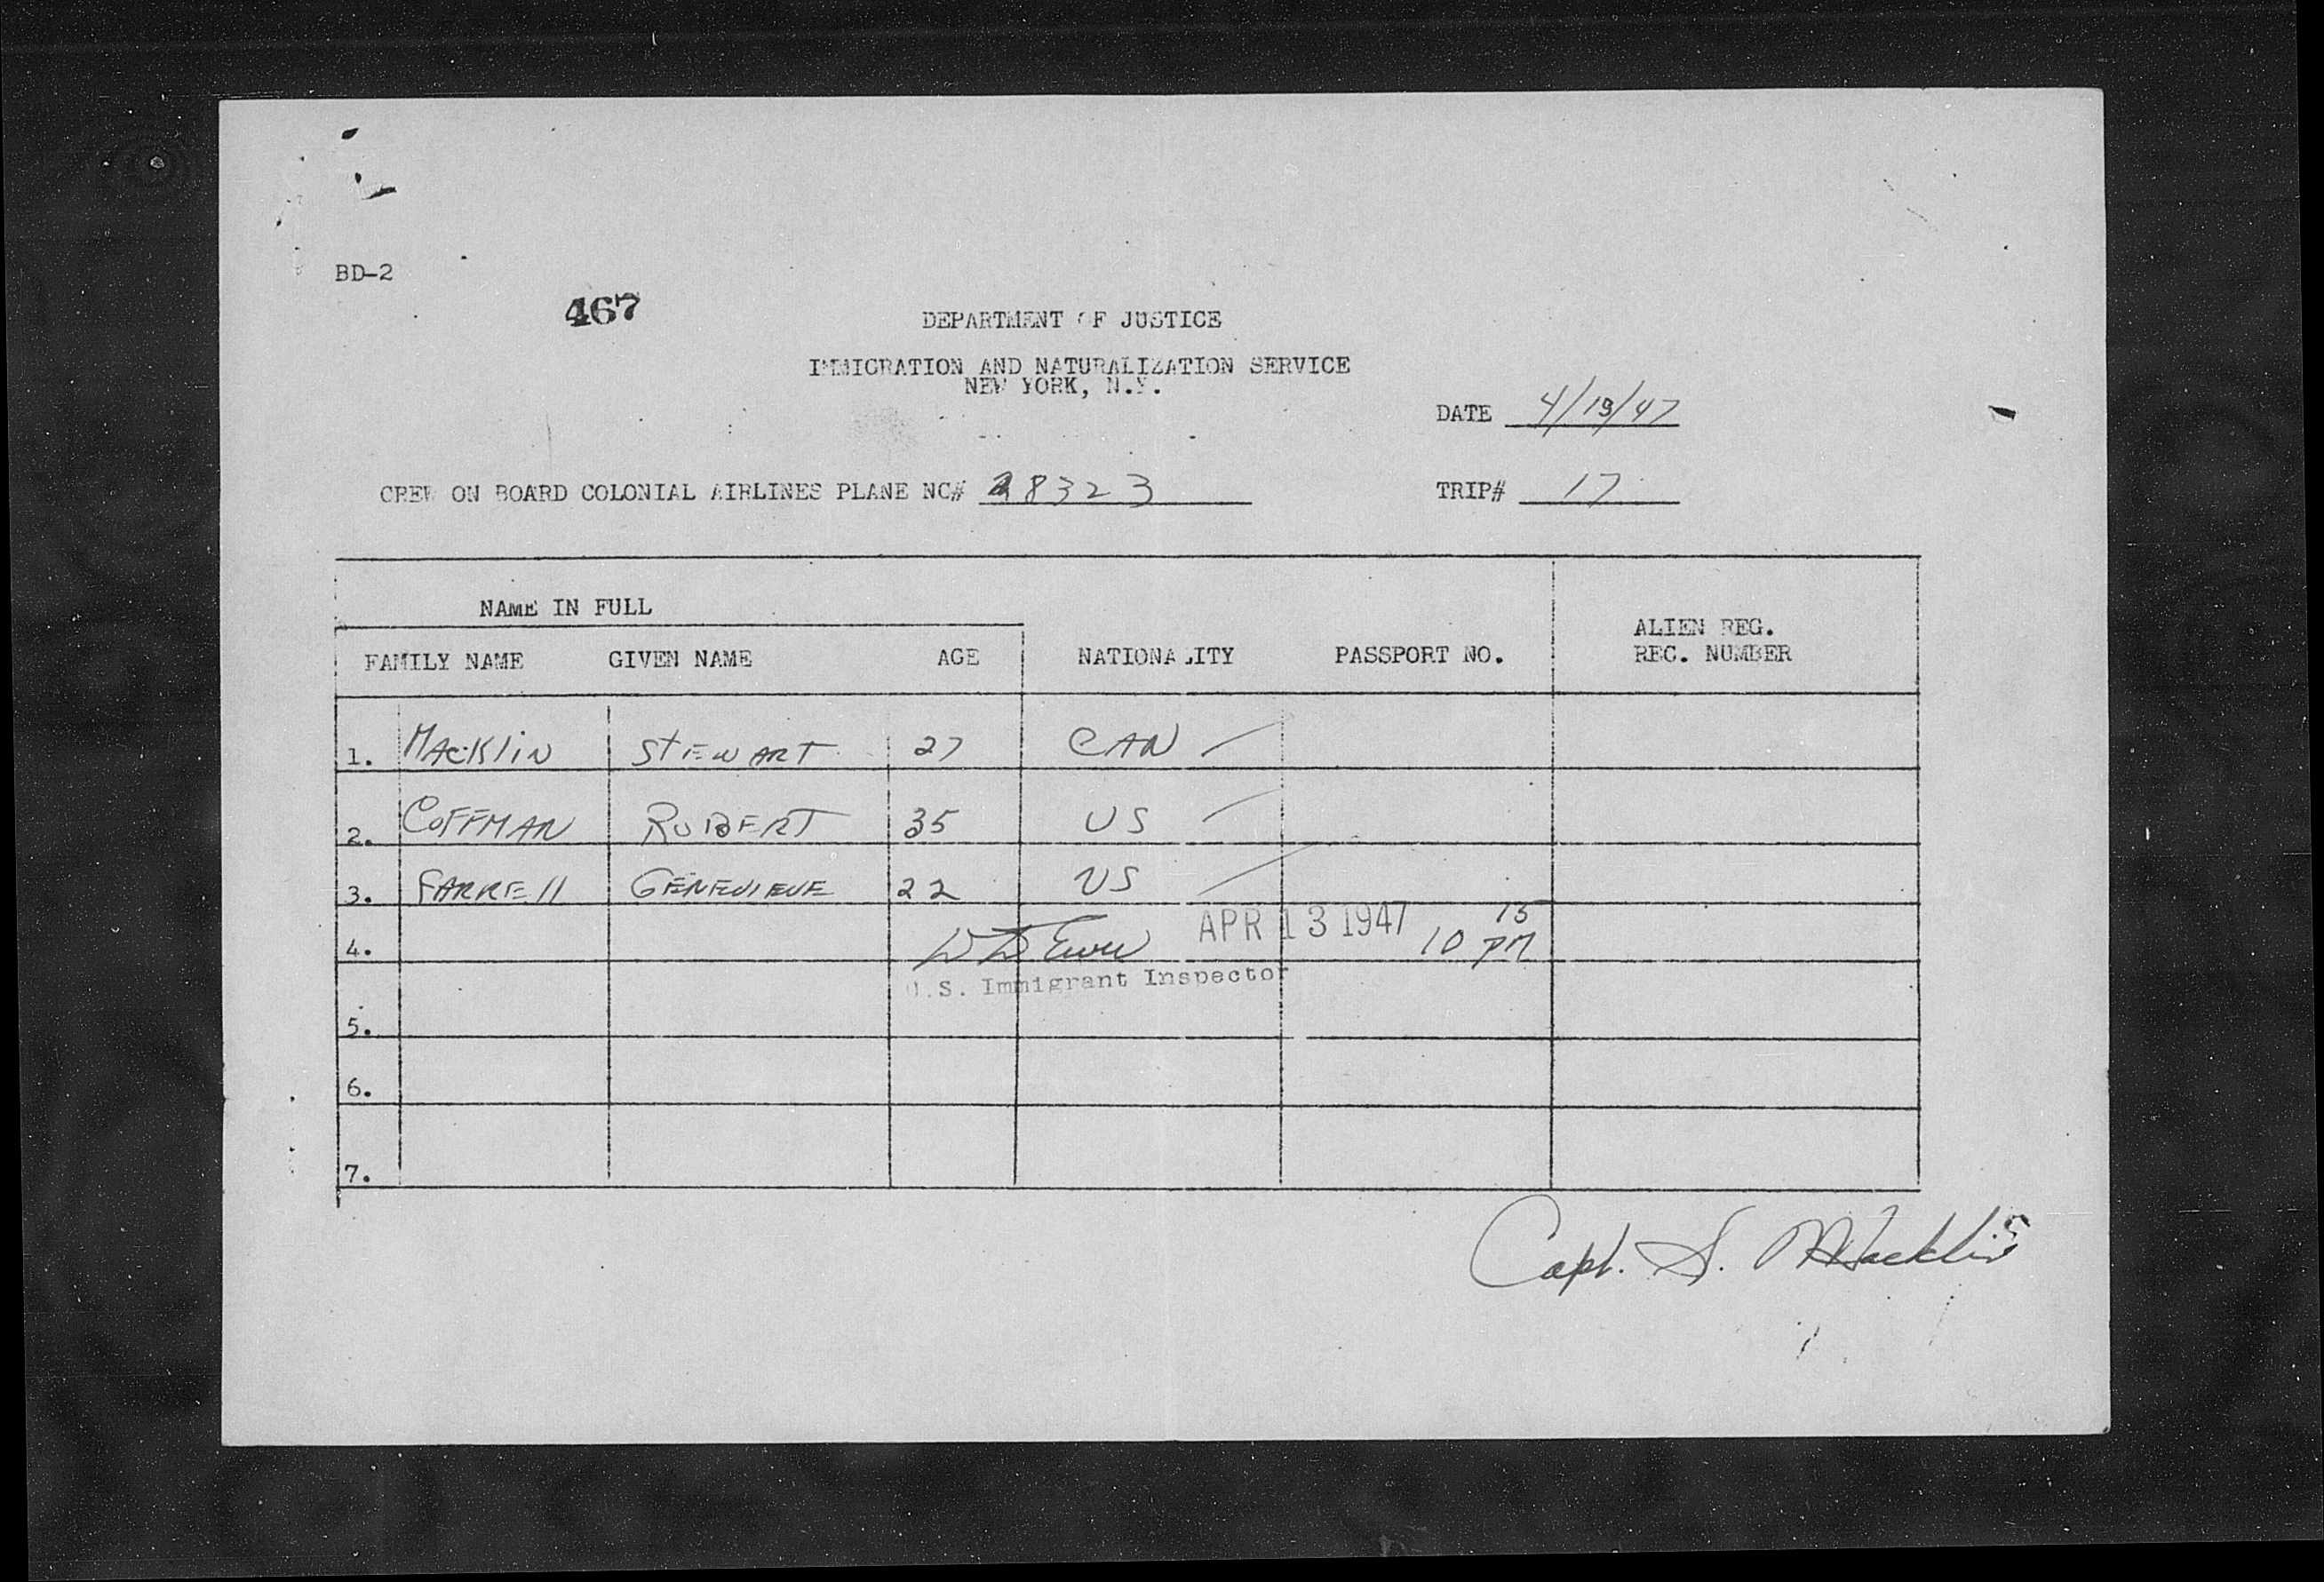 BD-2
467
DEPARTMENT OF JUSTICE
IMMIGRATION AND NATURALIZATION SERVICE
NEW YORK, N.Y.
DATE 4/13/47
CREW ON BOARD COLONIAL AIRLINES PLANE NC# 28323 TRIP# 17
NAME IN FULL
FAMILY NAME GIVEN NAME AGE NATIONALITY PASSPORT NO. ALIEN REG. REC. NUMBER
1. MACKLIN STEWART 27 CAN
2. COFFMAN ROBERT 35 US
3. FARRELL GENEVIEVE 22 US
4. APR 13 1947 10 15 PM
U.S. Immigrant Inspector
5.
6.
7.
Capt. S. Macklin